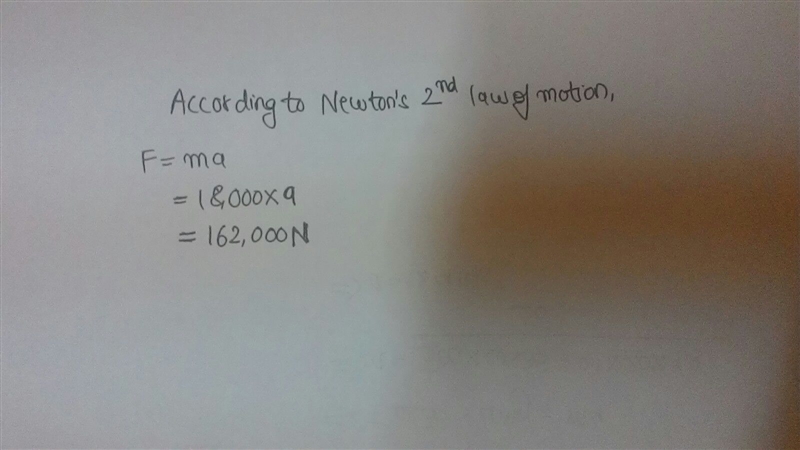 According to Newton's 2nd law of motion,
F = ma
= 18,000 x 9
= 162,000 N